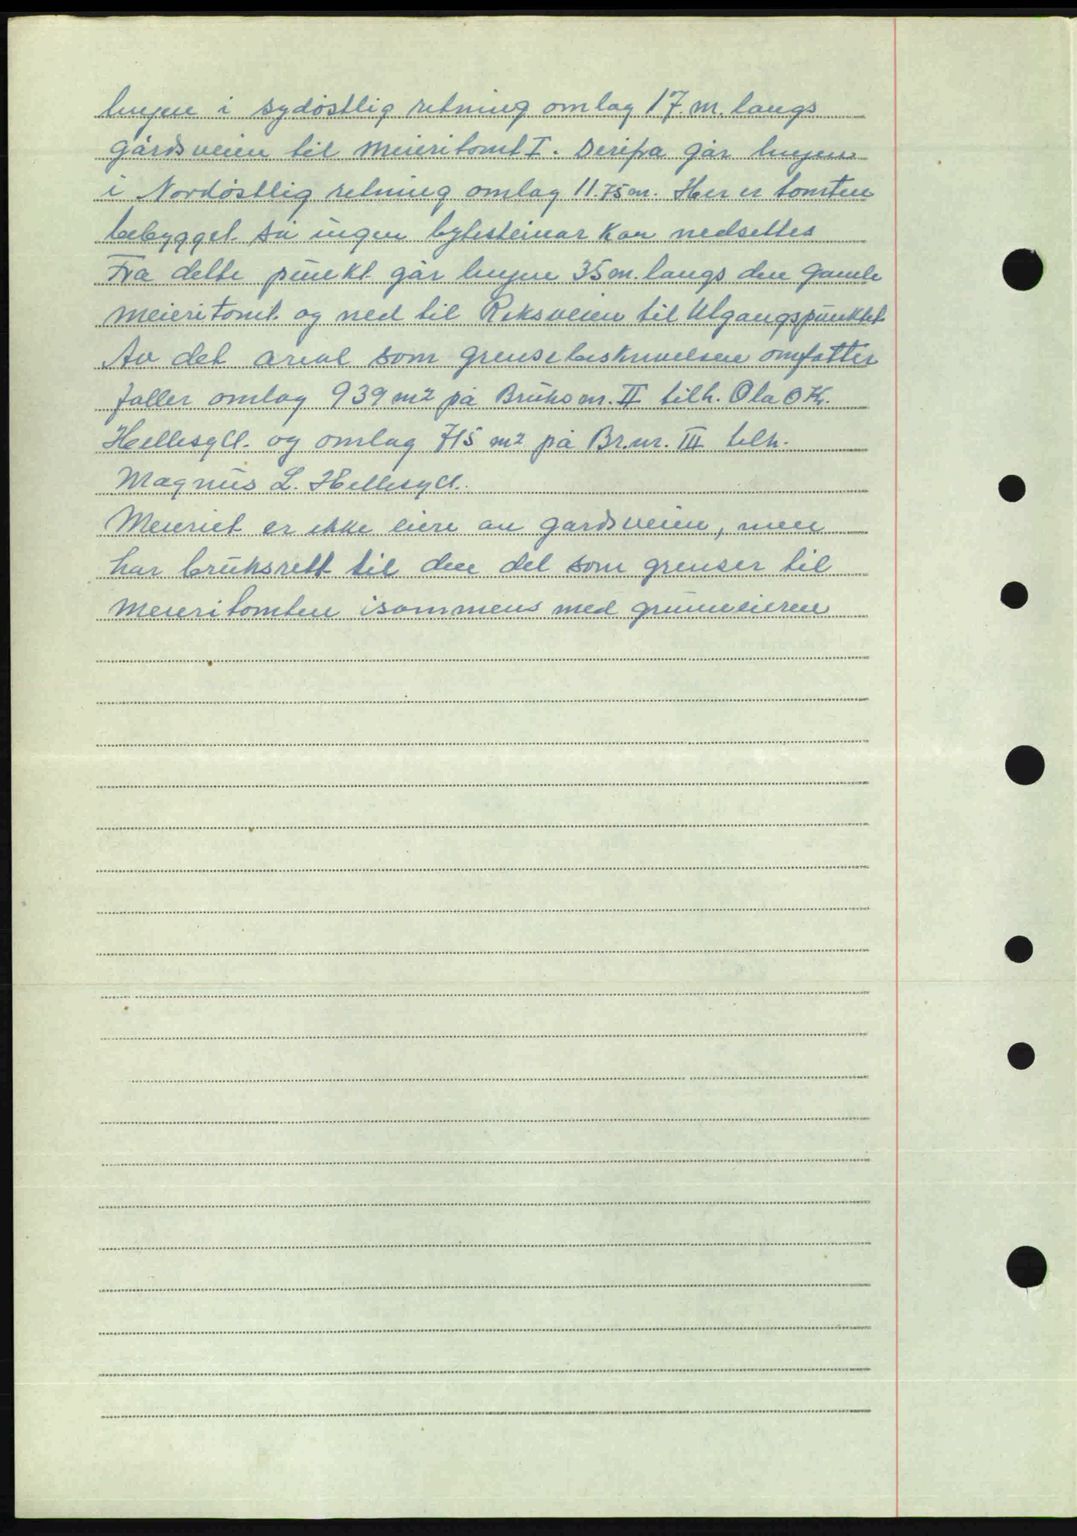 linjen i sydøstlig retning omlag 17 m. langs
gårdsveien til Meieritomt I. Derifra går linjen
i Nordøstlig retning omlag 11.75 m. Her er tomten
bebygget så ingen bytesteinar kan nedsettes
Fra dette punkt går linjen 35 m. langs den gamle
meieritomt og ned til Riksveien til Utgangspunktet
Av det areal som grensebeskrivelsen omfatter
faller omlag 939 m² på Bruksnr. II tilh. Ola O K.
Hellesylt. og omlag 715 m² på Br.nr. III tilh.
Magnus L. Hellesylt.
Meieriet er ikke eiere av gardsveien, men
har bruksrett til den del som grenser til
Meieritomten isammens med grunneieren